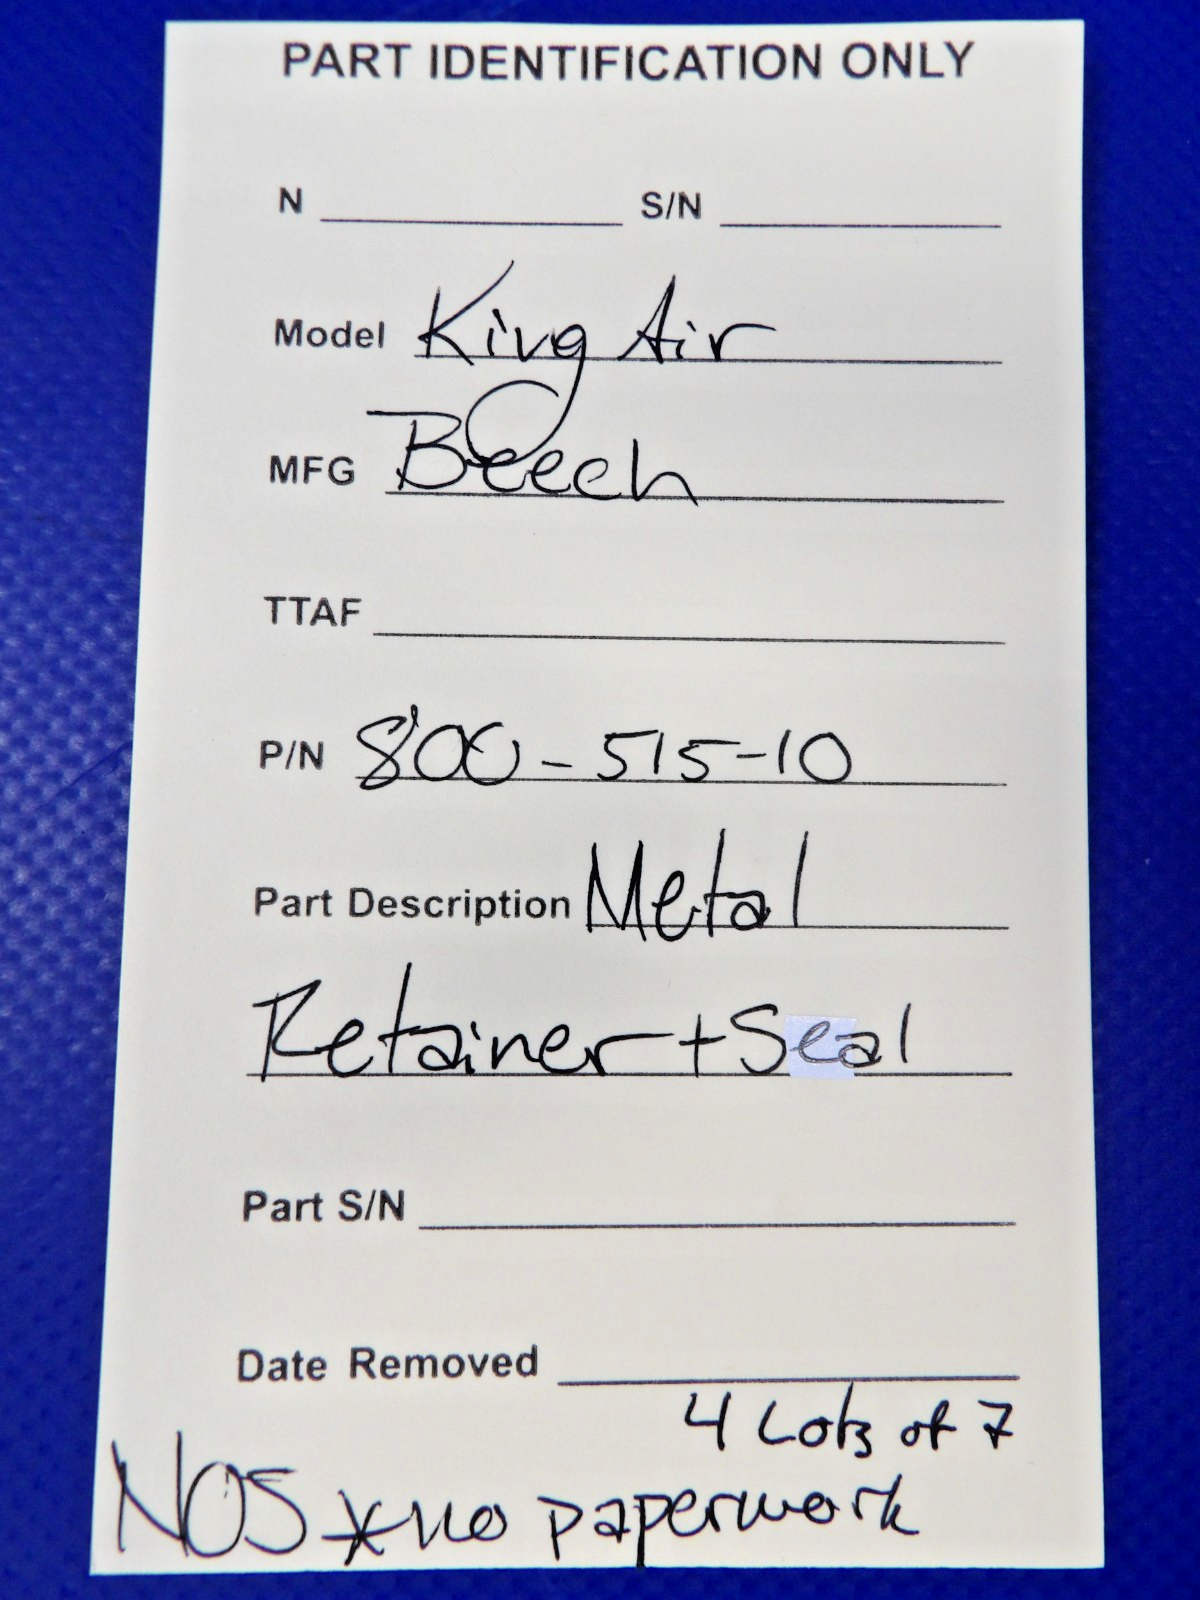 PART IDENTIFICATION ONLY
N S/N
Model King Air
MFG Beech
TTAF
P/N 800-515-10
Part Description Metal
Retainer + Seal
Part S/N
Date Removed
4 Lots of 7
NOS * no paperwork